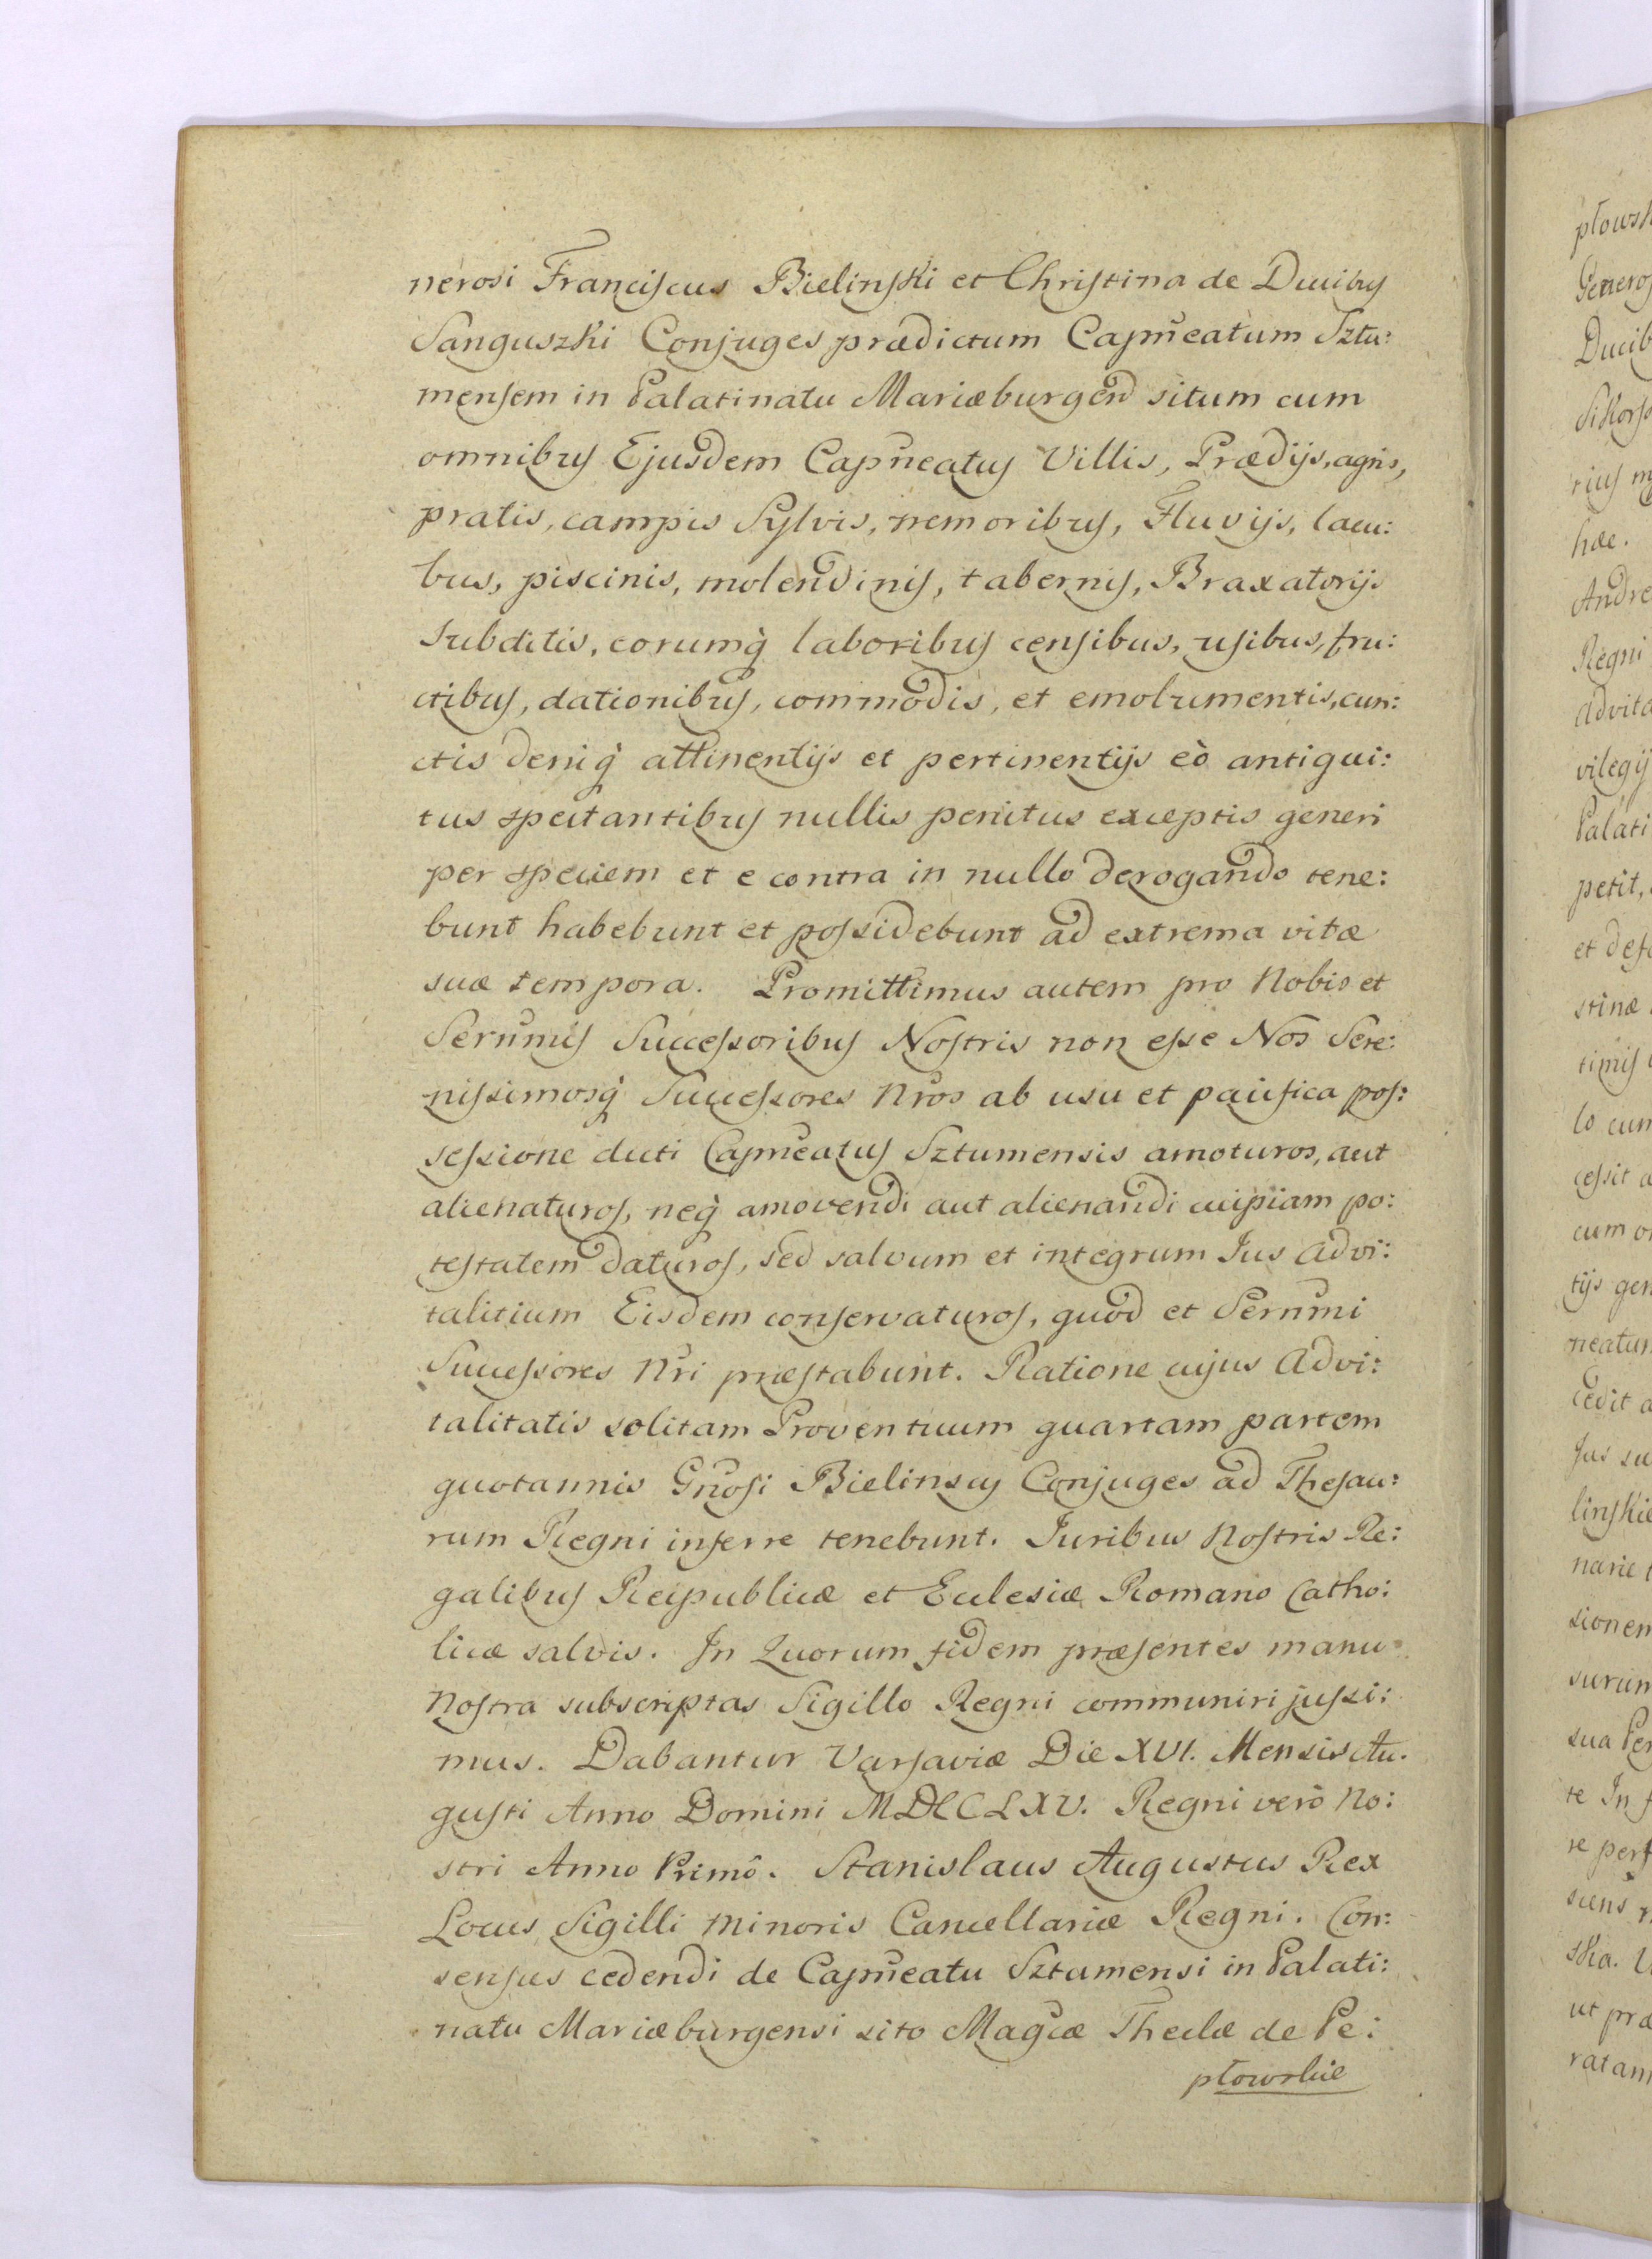 nerosi Franciscus Bielinski et Christina de Ducibus
Sanguszki Conjuges prædictum Capn̄eatum Sztu:
mensem in Palatinatu Mariæburgen̄ situm cum
omnibus Ejusdem Capn̄eatus Villis, Prædijs, agris,
pratis, campis Sylvis, nemoribus, Fluvijs, lacu:
bus, piscinis, molendinis, tabernis, Braxatorijs
Subditis, eorumq̀ laboribus censibus, usibus, fru:
ctibus, dationibus, commodis, et emolumentis, cun:
ctis deniq̀ attinentijs et pertinentijs eò antiqui:
tus spectantibus nullis penitus exceptis generi
per speciem et e contra in nullo derogando tene:
bunt habebunt et possidebunt ad extrema vitæ
suæ tempora. Promittimus autem pro Nobis et
Serēnmis Successoribus Nostris non esse Nos Sere:
nissimosq̀ Successores Nr̄os ab usu et pacifica pos:
sessione dicti Capn̄eatus Sztumensis amoturos, aut
alienaturos, neq̀ amovendi aut alienandi cuipiam po:
testatem daturos, sed salvum et integrum Jus advi:
talitium Eisdem conservaturos, quod et Serēnmi
Successores Nr̄i præstabunt. Ratione cujus Advi:
talitatis solitam Proventuum quartam partem
quotannis Gn̄osi Bielinscy Conjuges ad Thesau:
rum Regni inferre tenebunt. Juribus Nostris Re:
galibus Reipublicæ et Ecclesiæ Romano Catho:
licæ salvis. In Quorum fidem præsentes manu
Nostra subscriptas Sigillo Regni communiri jussi:
mus. Dabantur Varsaviæ Die XVI. Mensis Au:
gusti Anno Domini MDCCLXV. Regni verò No:
stri Anno Primô. Stanislaus Augustus Rex
Locus Sigilli Minoris Cancellariæ Regni. Con:
sensus cedendi de Capn̄eatu Sztumensi in Palati:
natu Mariæburgensi sito Magcæ Theclæ de Pe:
płowskie